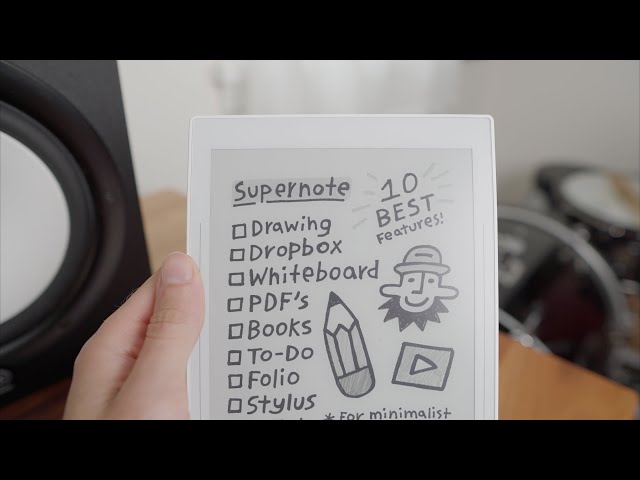 Supernote
10
BEST
Features!
Drawing
Dropbox
Whiteboard
PDF's
Books
To-Do
Folio
Stylus
* For minimalist